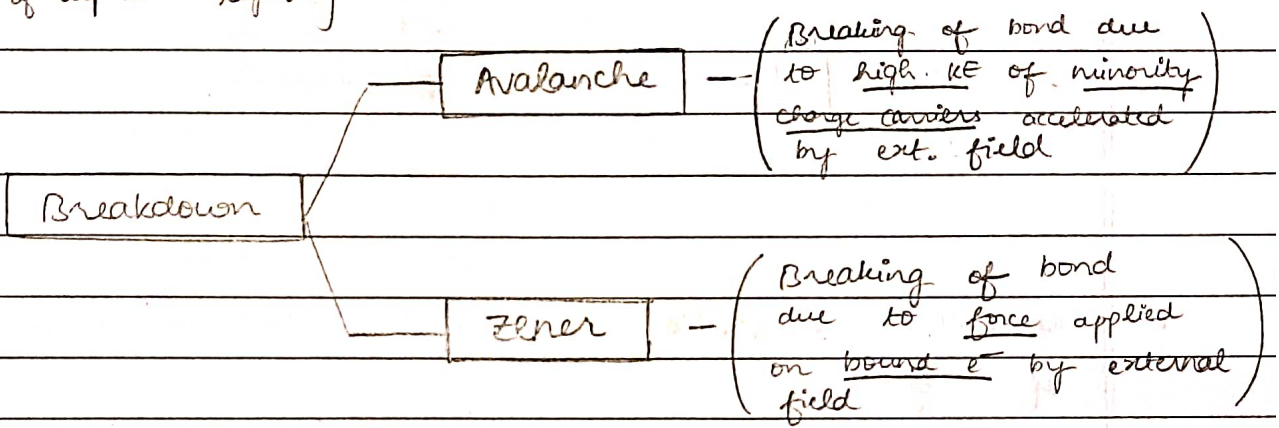 of
Avalanche
Breaking of bond due
to high. KE of minority
charge carriers accelerated
by ext. field
Breakdown
Zener
Breaking of bond
due to force applied
on bound e⁻ by external
field